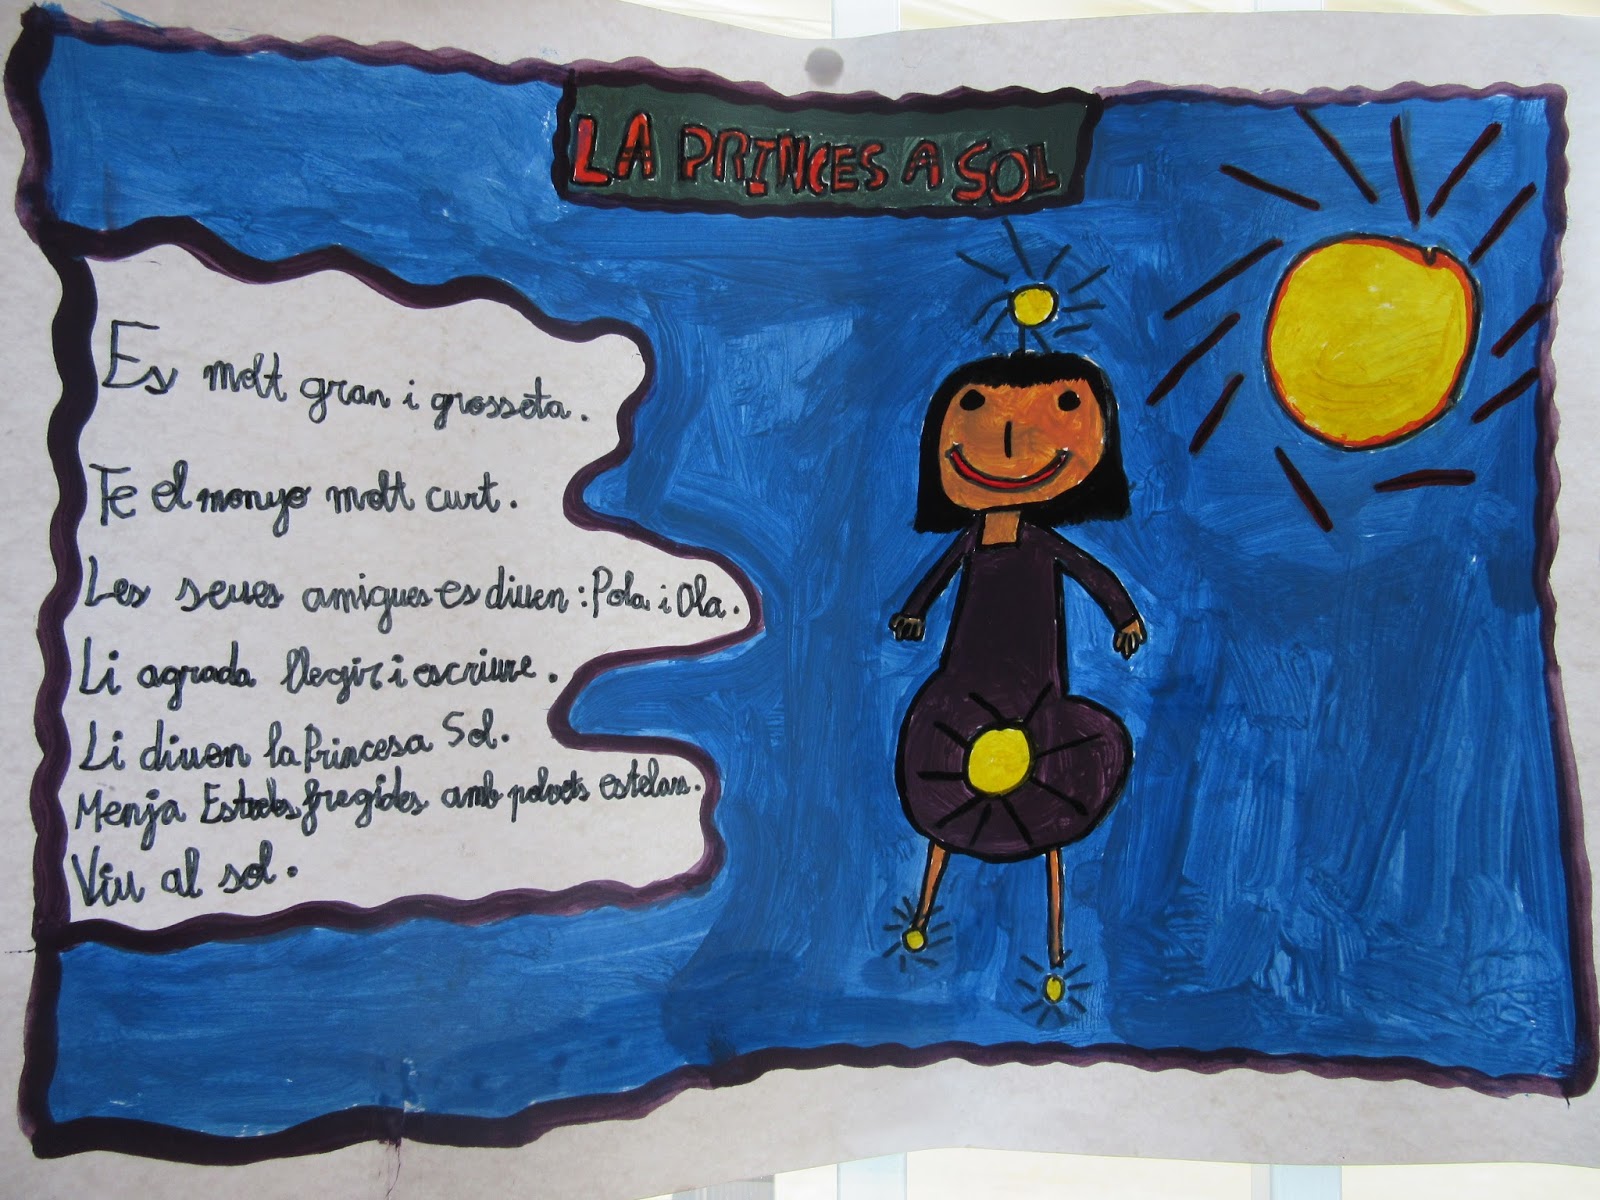 LA PRINCESA SOL
Es molt gran i grosseta.
Te el monyo molt curt.
Les seues amigues es diuen: Pola i Ola.
Li agrada llegir i escriure.
Li diuen la Princesa Sol.
Menja Estreles fregides amb polvets estelars.
Viu al sol.